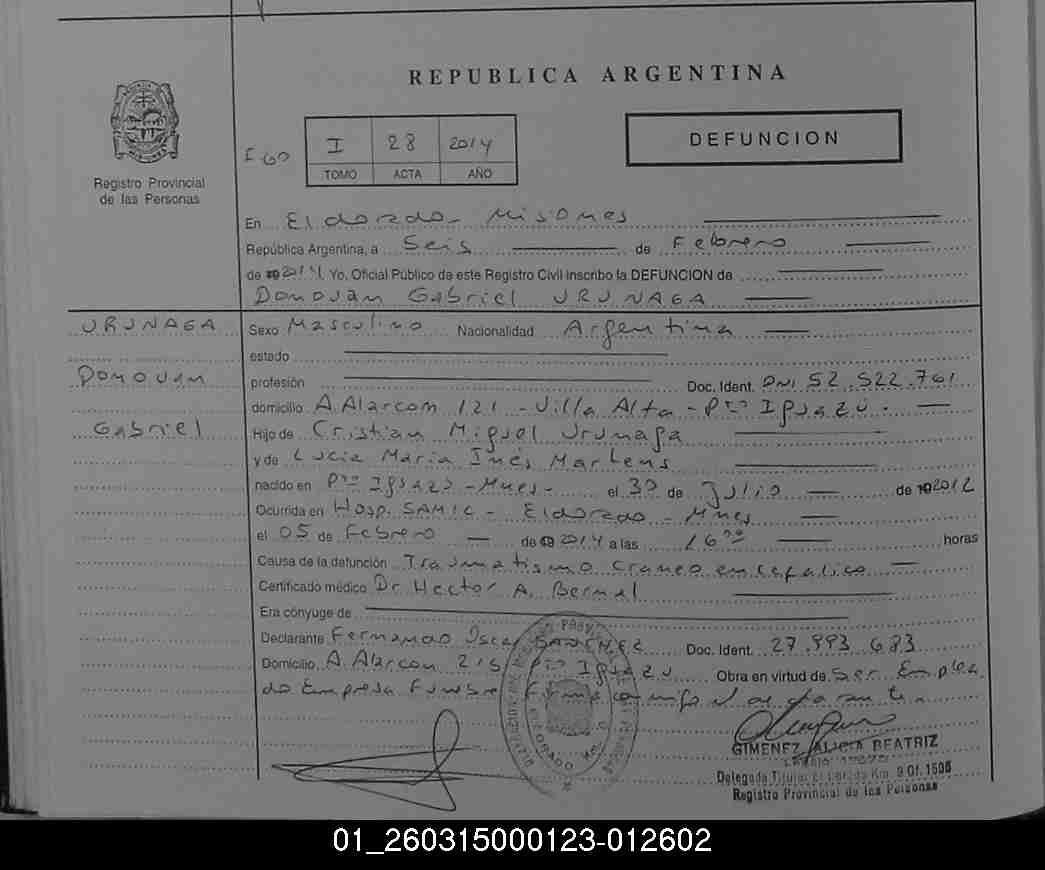 REPUBLICA ARGENTINA
Registro Provincial
de las Personas
I 28 2014
TOMO ACTA AÑO
DEFUNCION
En Eldorado - Misiones
República Argentina, a Seis de Febrero
de 2014 Yo, Oficial Público de este Registro Civil inscribo la DEFUNCION de
Donovan Gabriel URUNAGA
URUNAGA
Donovan
Gabriel
Sexo Masculino Nacionalidad Argentina
estado
profesión Doc. Ident. DNI 52.522.761
domicilio A. Alarcon 121 - Villa Alta - Pto Iguazú.
Hijo de Cristian Miguel Urunaga
y de Lucia Maria Inés Martens
nacido en Pto Iguazú - Mnes - el 30 de Julio de 2012
Ocurrida en Hosp. SAMIC - Eldorado - Mnes
el 05 de Febrero de 2014 a las 16 horas
Causa de la defunción Traumatismo craneo encefalico
Certificado médico Dr. Hector A. Bernal
Era cónyuge de
Declarante Fernando Doc. Ident. 27.993.683
Domicilio A. Alarcon Pto Iguazu Obra en virtud de Ser Emplea
do Empresa Funebre Firma conmigo el declarante.
GIMENEZ, ALICIA BEATRIZ
Delegada Titular Eldorado Km. 9 Of. 1596
Registro Provincial de las Personas
01_260315000123-012602